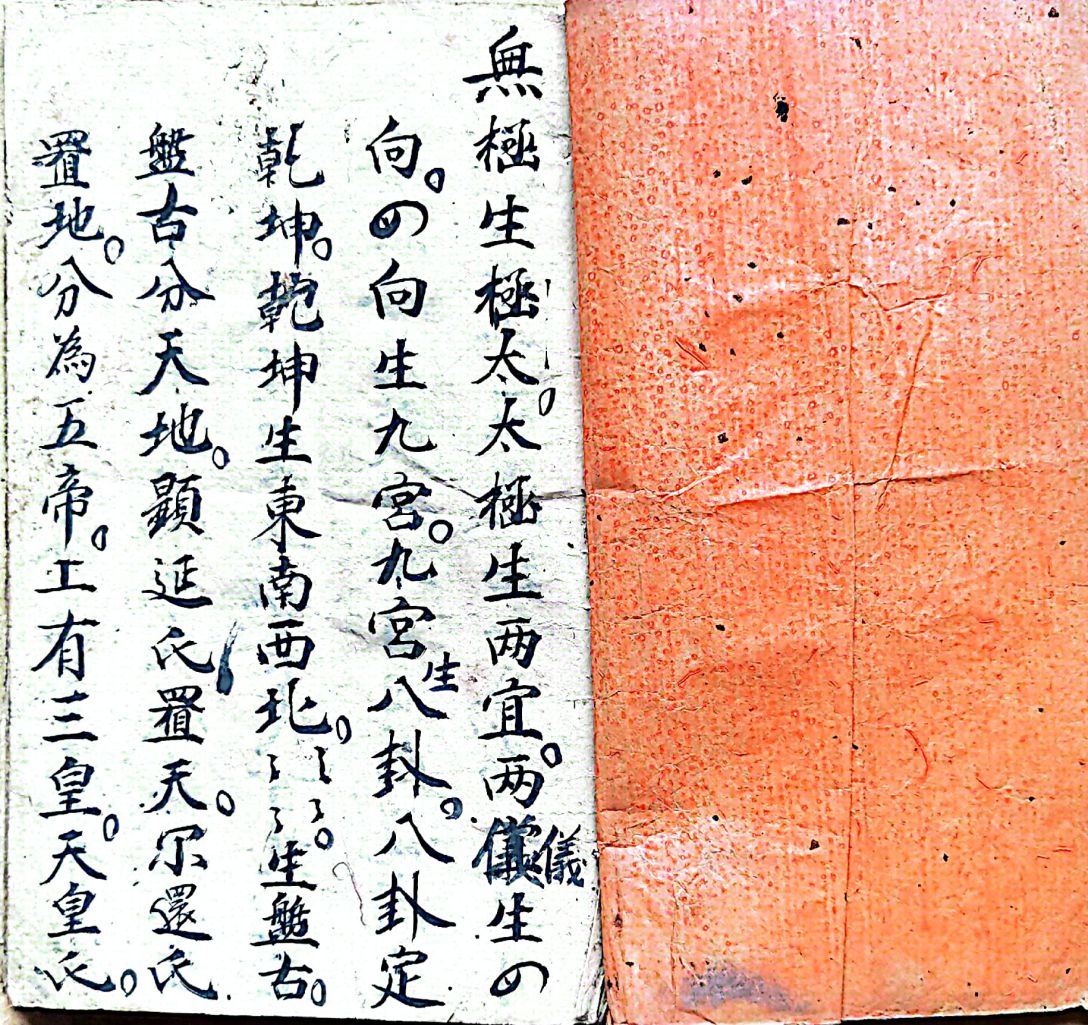 無極生極太。太極生两宜。两儀儀生の
向。の向生九宮。九宮生八卦。八卦定
乾坤。乾坤生東南西北。〻〻〻〻。生盤古。
盤古分天地。顕延氏置天。尔還氏
置地。分為五帝。工有三皇。天皇氏。